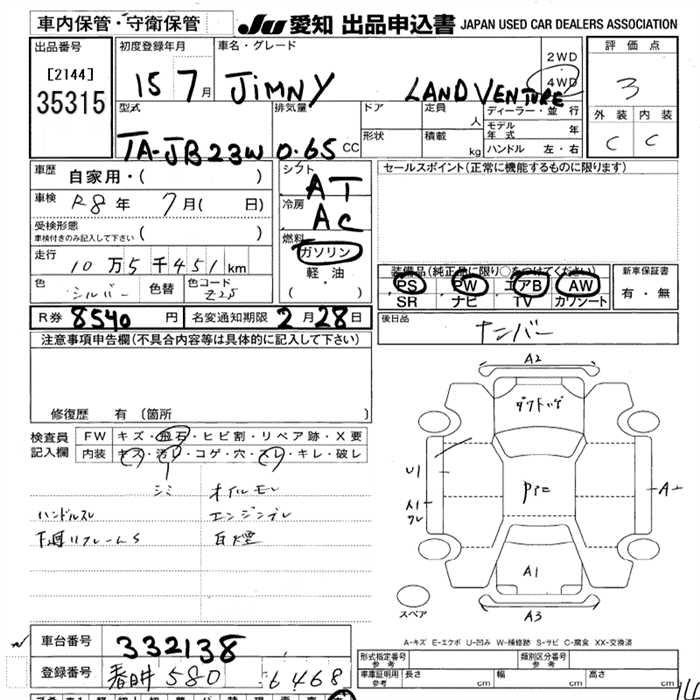 車内保管・守衛保管
JU 愛知 出品申込書 JAPAN USED CAR DEALERS ASSOCIATION
出品番号
[2144]
35315
初度登録年月
15 7月
車名・グレード
JIMNY LAND VENTURE
2WD
・
4WD
評価点
3
外装 内装
C C
型式
TA-JB23W
排気量
0.65 CC
ドア
形状
定員 人
積載 kg
ディーラー・並行
モデル年式 年
ハンドル 左・右
車歴 自家用・( )
車検 R8年 7月( 日)
受検形態
車検付きのみ記入して下さい ( )
走行 10万5千451km
色 シルバー 色替 色コード Z2S
シフト AT
冷房 AC
燃料
ガソリン
軽・油
( ・ )
セールスポイント(正常に機能するものに限ります)
装備品(純正品に限り○をつけてください)
PS PW エアB AW
SR ナビ TV カワシート
新車保証書
有・無
R券 8540円 名変通知期限 2月28日
後日品 ナンバー
注意事項申告欄(不具合内容等は具体的に記入して下さい)
修復歴 有 〔箇所 〕
検査員記入欄
FW キズ・飛石・ヒビ割・リペア跡・X要
内装 キズ・汚レ・コゲ・穴・スレ・キレ・破レ
シミ オイルモレ
ハンドルスレ
下廻りフレームS 白煙
A2
U1
A1
A3
スペア
A-キズ E-エクボ U-凹み W-補修跡 S-サビ C-腐食 XX-交換済
車台番号 332138
登録番号 春日井 580 6468
形式指定番号
参考
類別区分番号
参考
車庫証明用
参考
長さ cm 幅 cm 高さ cm